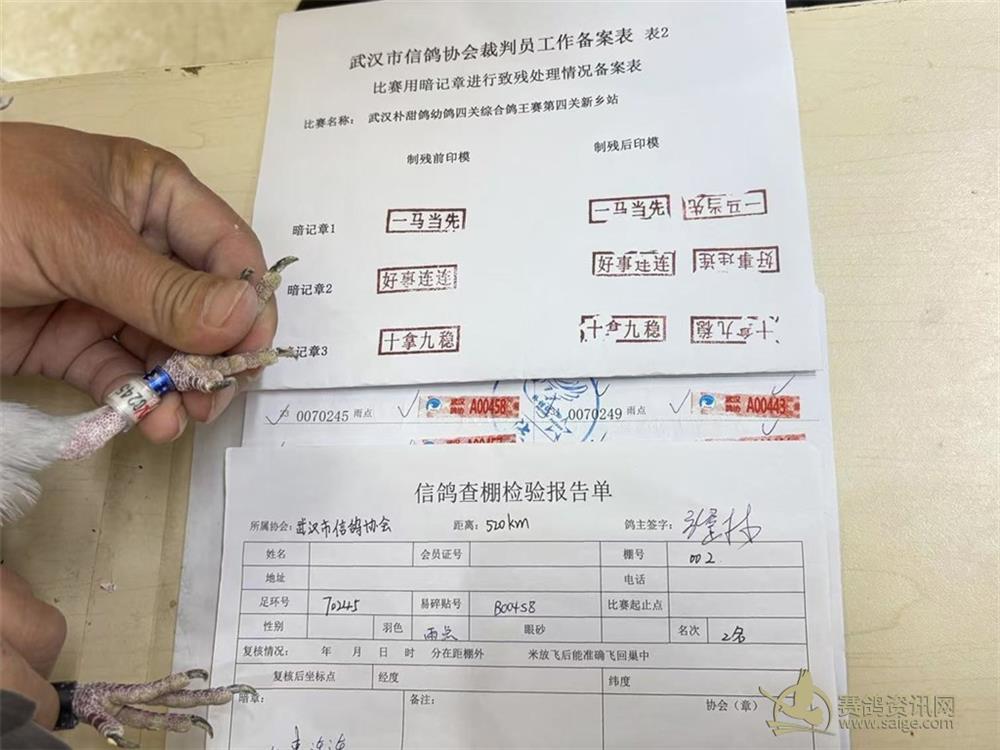 武汉市信鸽协会裁判员工作备案表 表2
比赛用暗记章进行致残处理情况备案表
比赛名称： 武汉朴甜鸽幼鸽四关综合鸽王赛第四关新乡站
制残前印模 制残后印模
暗记章1 一马当先 一马当先 一马当先
暗记章2 好事连连 好事连连 好事连连
记章3 十拿九稳 十拿九稳 十拿九稳
N00245
0070245 雨点 武汉鸽协 A00458 0070249 雨点 武汉鸽协 A00443
信鸽查棚检验报告单
所属协会：武汉市信鸽协会 距离：520km 鸽主签字：
姓名 会员证号 棚号 002
地址 电话
足环号 70245 易碎贴号 B00458 比赛起止点
性别 羽色 雨点 眼砂 名次 2名
复核情况： 年 月 日 时 分在距棚外 米放飞后能准确飞回巢中
复核后坐标点 经度 纬度
暗章： 备注： 协会（章）
赛鸽资讯网
www.saige.com